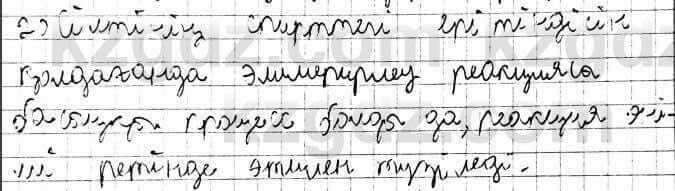 2) Сілтінің спирттегі ерітіндісін
қолдағанда элиминирлеу реакциясы
басымырақ процесс болады да, реакция өні-
мі ретінде этилен түзіледі.